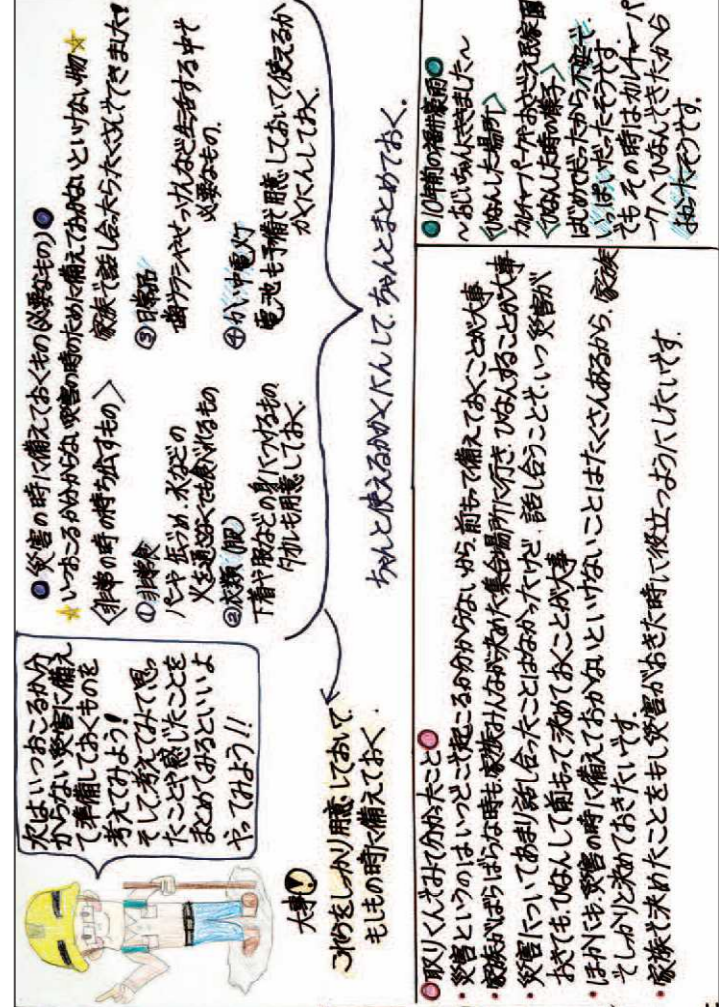 次はいつおこるか分
からない災害に備え
て準備しておくものを
考えてみよう!
そして考えてみて思っ
たことや感じたことを
まとめてみるといいよ
やってみよう!!
●災害の時に備えておくもの(必要なもの)●
☆いつおこるか分からない災害の時のために備えておかないといけない物☆
〈非常の時の持ち出すもの〉
家族で話し合ったらたくさんでてきました!
①非常食
パンや缶づめ、水などの
火を通さなくても食べれるもの
②衣類(服)
下着や服などの身につけるもの
タオルも用意しておく。
③日常品
歯ブラシやせっけんなど生活する中で
必要なもの。
④かい中電灯
電池も予備を用意しておいて使えるか
かくにんしておく。
ちゃんと使えるかかくにんして、ちゃんとまとめておく。
大事!
これらをしっかり用意しておいて、
もしもの時に備えておく。
●取りくんでみて分かったこと●
・災害というのはいつどこで起こるか分からないから、前もって備えておくことが大事
・家族がばらばらな時も家族みんなが決めた集合場所に行き、ひなんすることが大事
・災害についてあまり話し合ったことはなかったけど、話し合うことで、いつ災害が
おきても、ひなんして前もって決めておくことが大事
・ほかにも、災害の時に備えておかないといけないことはたくさんあるから、家族
でしっかりと決めておきたいです。
・家族で決めたことをもし災害がおきた時に役立つようにしたいです。
●10年前の福井豪雨●
～おじいちゃんにききました～
〈ひなんした場所〉
カルチャーパークやおさごえ民家園
〈ひなんした時の様子〉
はじめてだったから不安で
いっぱいだったそうです。
でもその時はカルチャーパ
ークへひなんできたから
よかったそうです。